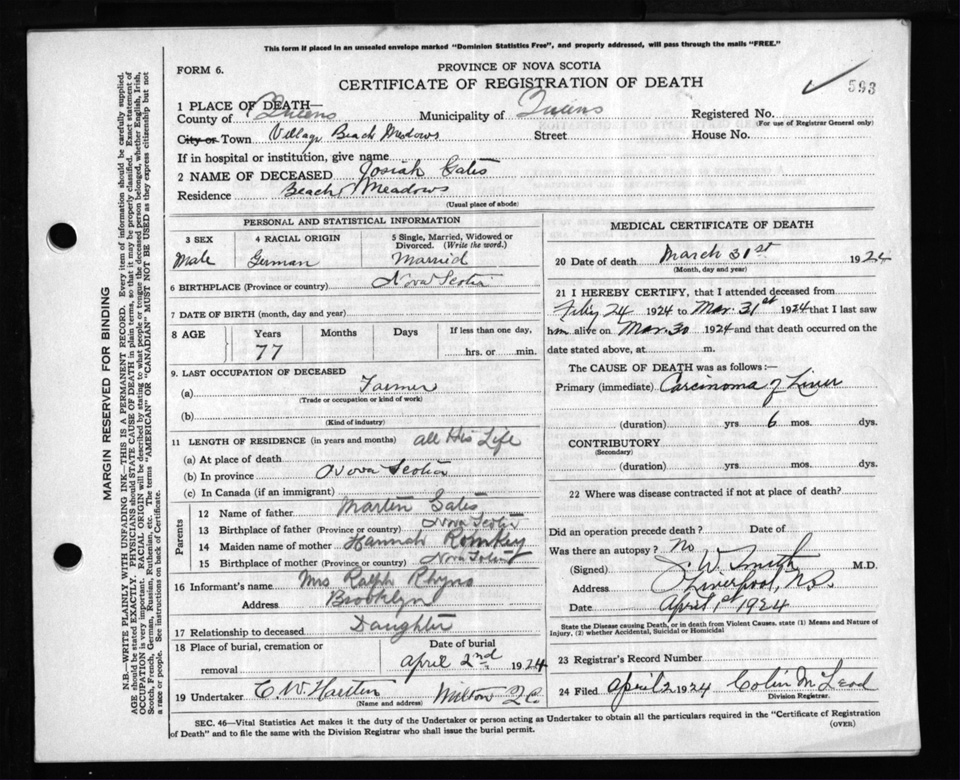 This form if placed in an unsealed envelope marked "Dominion Statistics Free", and properly addressed, will pass through the mails "FREE."
FORM 6.
PROVINCE OF NOVA SCOTIA
CERTIFICATE OF REGISTRATION OF DEATH
593
1 PLACE OF DEATH—
County of Queens Municipality of Queens Registered No.
(For use of Registrar General only)
City or Town Village Beach Meadows Street House No.
If in hospital or institution, give name
2 NAME OF DECEASED Josiah Gates
Residence Beach Meadows
(Usual place of abode)
PERSONAL AND STATISTICAL INFORMATION
3 SEX 4 RACIAL ORIGIN 5 Single, Married, Widowed or Divorced. (Write the word.)
Male German Married
6 BIRTHPLACE (Province or country) Nova Scotia
7 DATE OF BIRTH (month, day and year)
8 AGE Years Months Days If less than one day,
77 hrs. or min.
9. LAST OCCUPATION OF DECEASED
(a) Farmer
(Trade or occupation or kind of work)
(b)
(Kind of industry)
11 LENGTH OF RESIDENCE (in years and months) all His Life
(a) At place of death
(b) In province Nova Scotia
(c) In Canada (if an immigrant)
Parents
12 Name of father Martin Gates
13 Birthplace of father (Province or country) Nova Scotia
14 Maiden name of mother Hannah Romkey
15 Birthplace of mother (Province or country) Nova Scotia
16 Informant's name Mrs Ralph Rhyno
Address Brooklyn
17 Relationship to deceased Daughter
18 Place of burial, cremation or removal Date of burial
April 2nd 1924
19 Undertaker C. W. Milton Q.C.
(Name and address)
MEDICAL CERTIFICATE OF DEATH
20 Date of death March 31st 1924
(Month, day and year)
21 I HEREBY CERTIFY, that I attended deceased from
Feby 24 1924 to Mar. 31st 1924 that I last saw
him alive on Mar. 30 1924 and that death occurred on the
date stated above, at m.
The CAUSE OF DEATH was as follows:—
Primary (immediate) Carcinoma of Liver
(duration) yrs 6 mos. dys.
CONTRIBUTORY
(Secondary)
(duration) yrs. mos. dys.
22 Where was disease contracted if not at place of death?
Did an operation precede death? Date of
Was there an autopsy? no
(Signed) J. W. Smith M.D.
Address Liverpool, N.S.
Date April 1st 1924
State the Disease causing Death, or in death from Violent Causes. state (1) Means and Nature of
Injury, (2) whether Accidental, Suicidal or Homicidal
23 Registrar's Record Number
24 Filed April 2 1924 Colin McLeod
Division Registrar.
SEC. 46—Vital Statistics Act makes it the duty of the Undertaker or person acting as Undertaker to obtain all the particulars required in the "Certificate of Registration
of Death" and to file the same with the Division Registrar who shall issue the burial permit.
(OVER)
MARGIN RESERVED FOR BINDING
N.B.—WRITE PLAINLY WITH UNFADING INK—THIS IS A PERMANENT RECORD. Every item of information should be carefully supplied.
AGE should be stated EXACTLY. PHYSICIANS should STATE CAUSE OF DEATH in plain terms, so that it may be properly classified. Exact statement of
OCCUPATION is very important. RACIAL ORIGIN will be described by stating to what people or tongue the deceased person belonged, whether English, Irish,
Scotch, French, German, Russian, Ruthenian, etc. The terms "AMERICAN" OR "CANADIAN" MUST NOT BE USED as they express citizenship but not
a race or people. See instructions on back of Certificate.